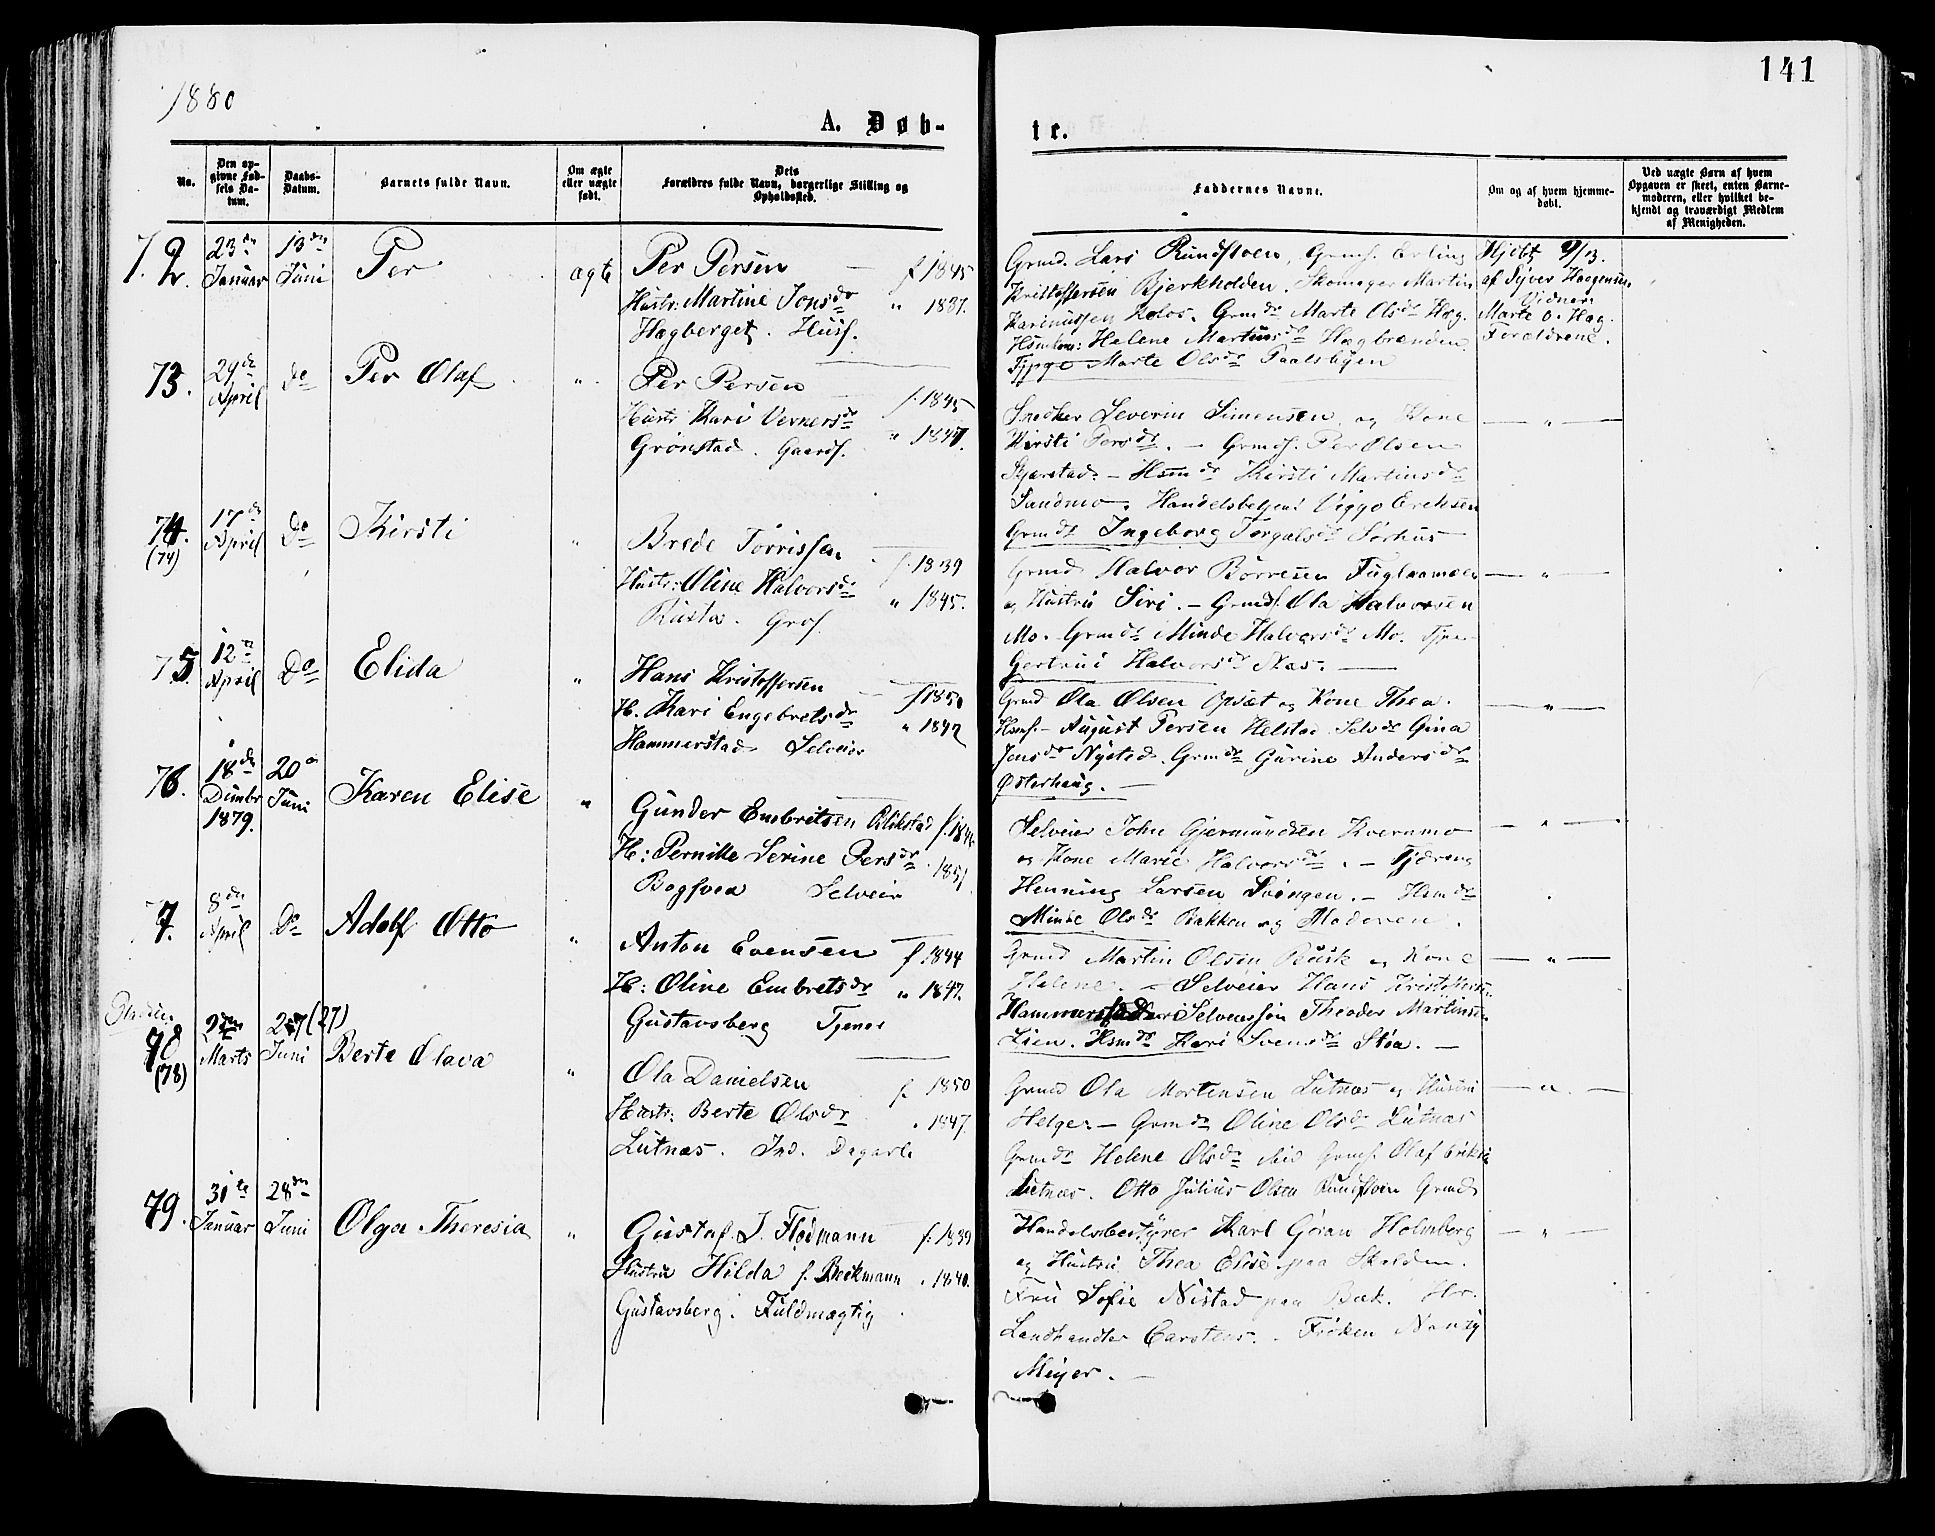 1880
141
A. Døb-
te.
No.
Den op-
givne Fød-
sels Da-
tum.
Daabs-
Datum.
Barnets fulde Navn.
Om ægte
eller uægte
født.
Dets
Forældres fulde Navn, borgerlige Stilling og
Opholdssted.
Faddernes Navne.
Om og af hvem hjemme-
døbt.
Ved uægte Børn af hvem
Opgaven er skeet, enten Barne-
moderen, eller hvilket be-
kjendt og troværdigt Medlem
af Menigheden.
72.
23de
Januar
13de
Juni
Per
ægte
Per Persen f. 1845
Hustr: Martine Jonsdr " 1837.
Hagberget. Husf.
Grmd. Lars Rundfloen, Grmf. Erling
Kristoffersen Bjerkholden. Skomager Martin
Karinussen Kolos. Grmdr Marte Olsdr Hag.
Helene Martinusdr Hagbrænden.
Marte Olsdr Paalsbyen
Hjdbt 9/13.
af Syver Haagensen
Vidner:
Marte O. Hag.
Foreldrene.
73.
29de
April
do
Per Olaf
"
Per Persen f. 1845
Hustr. Kari Vernersdr " 1847.
Grønstad. Gaardf.
Snedker Severin Simensen og Kone
Kirsti Persdr. — Grmdf. Per Olsen
Skjærstad. — Hsmdr Kirsti Martinsdr
Sandmo. Handelsbetjent Viggo Ereksen
Grmdr Ingeborg Torgalsdr Sørhus
— " —
74.
(74)
17de
April
Do
Kirsti
"
Brede Torrissen f. 1839
Hustr: Oline Halvorsdr " 1845.
Rusta. Grdf.
Grmd Halvor Børresen Fuglaamoen
og Hustru Siri. — Grmdf. Ola Halvorsen
Mo. Grmdr Minde Halvorsdr Mo.
Gertrud Halvorsdr Næs. —
— " —
75.
12te
April
Do
Elida
"
Hans Kristoffersen f 1850
H. Kari Engebretsdr " 1842
Hammerstad Selveier
Grmd Ola Olsen Opsæt og Kone Thea.
Hsmf. — August Persen Helstad. Selvdr Gina
Jonsdr Nysted. Grmdr Gurine Andersdr
Østerhaug. —
— " —
76.
18de
Dcmbr
1879.
20de
Juni
Karen Elise
"
Gunder Embretsen Blikstad
H: Pernille Serine Persdr " 1851.
Bogfoea Selveier
Selveier John Gjermundsen Kvernmo
og Kone Marie Halvorsdr. —
Henning Larsen Svingen. — Hsmdr
Minde Olsdr Bakken og Moderen.
— " —
77.
8de
April
Do
Adolf Otto
"
Anton Evensen f 1844
H: Oline Embretsdr " 1847.
Gustavsberg Tjener
Grmd Martin Olsen Rusk og Kone
Helene. — Selveier Hans Kristoffersen
Hammerstad Selveiersøn Theodor Martinsen
Lien. Hsmdr Kari Svensdr Støa. —
— " —
78
(78)
Marts
27 (27)
Juni
Berte Olava
"
Ola Danielsen f. 1850
Hustr: Berte Olsdr " 1847.
Lutnæs. Ind. Dagarb
Grmd Ola Mortensen Lutnæs og Hustru
Helge. — Grmdr Oline Olsdr Lutnæs
Grmdr Helene Olsdr ibid Grmf. Olaf Eriks
Lutnæs. Otto Julius Olsen Rundfloen Grmds
— " —
79.
31te
Januar
28de
Juni
Olga Theresia
"
Gustaf J. Flodmann f. 1839
Hustru Hilda f. Beckmann " 1840.
Gustavsberg. Fuldmægtig
Handelsbestyrer Karl Gøran Holmberg
og Hustru Thea Elise paa Skolden.
Fru Sofie Nistad paa Bæk. Hr.
Landhandler Carstens. Frøken Nanzy
Meyer. —
— " —